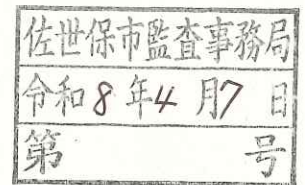 佐世保市監査事務局
令和8年4月7日
第　　　号